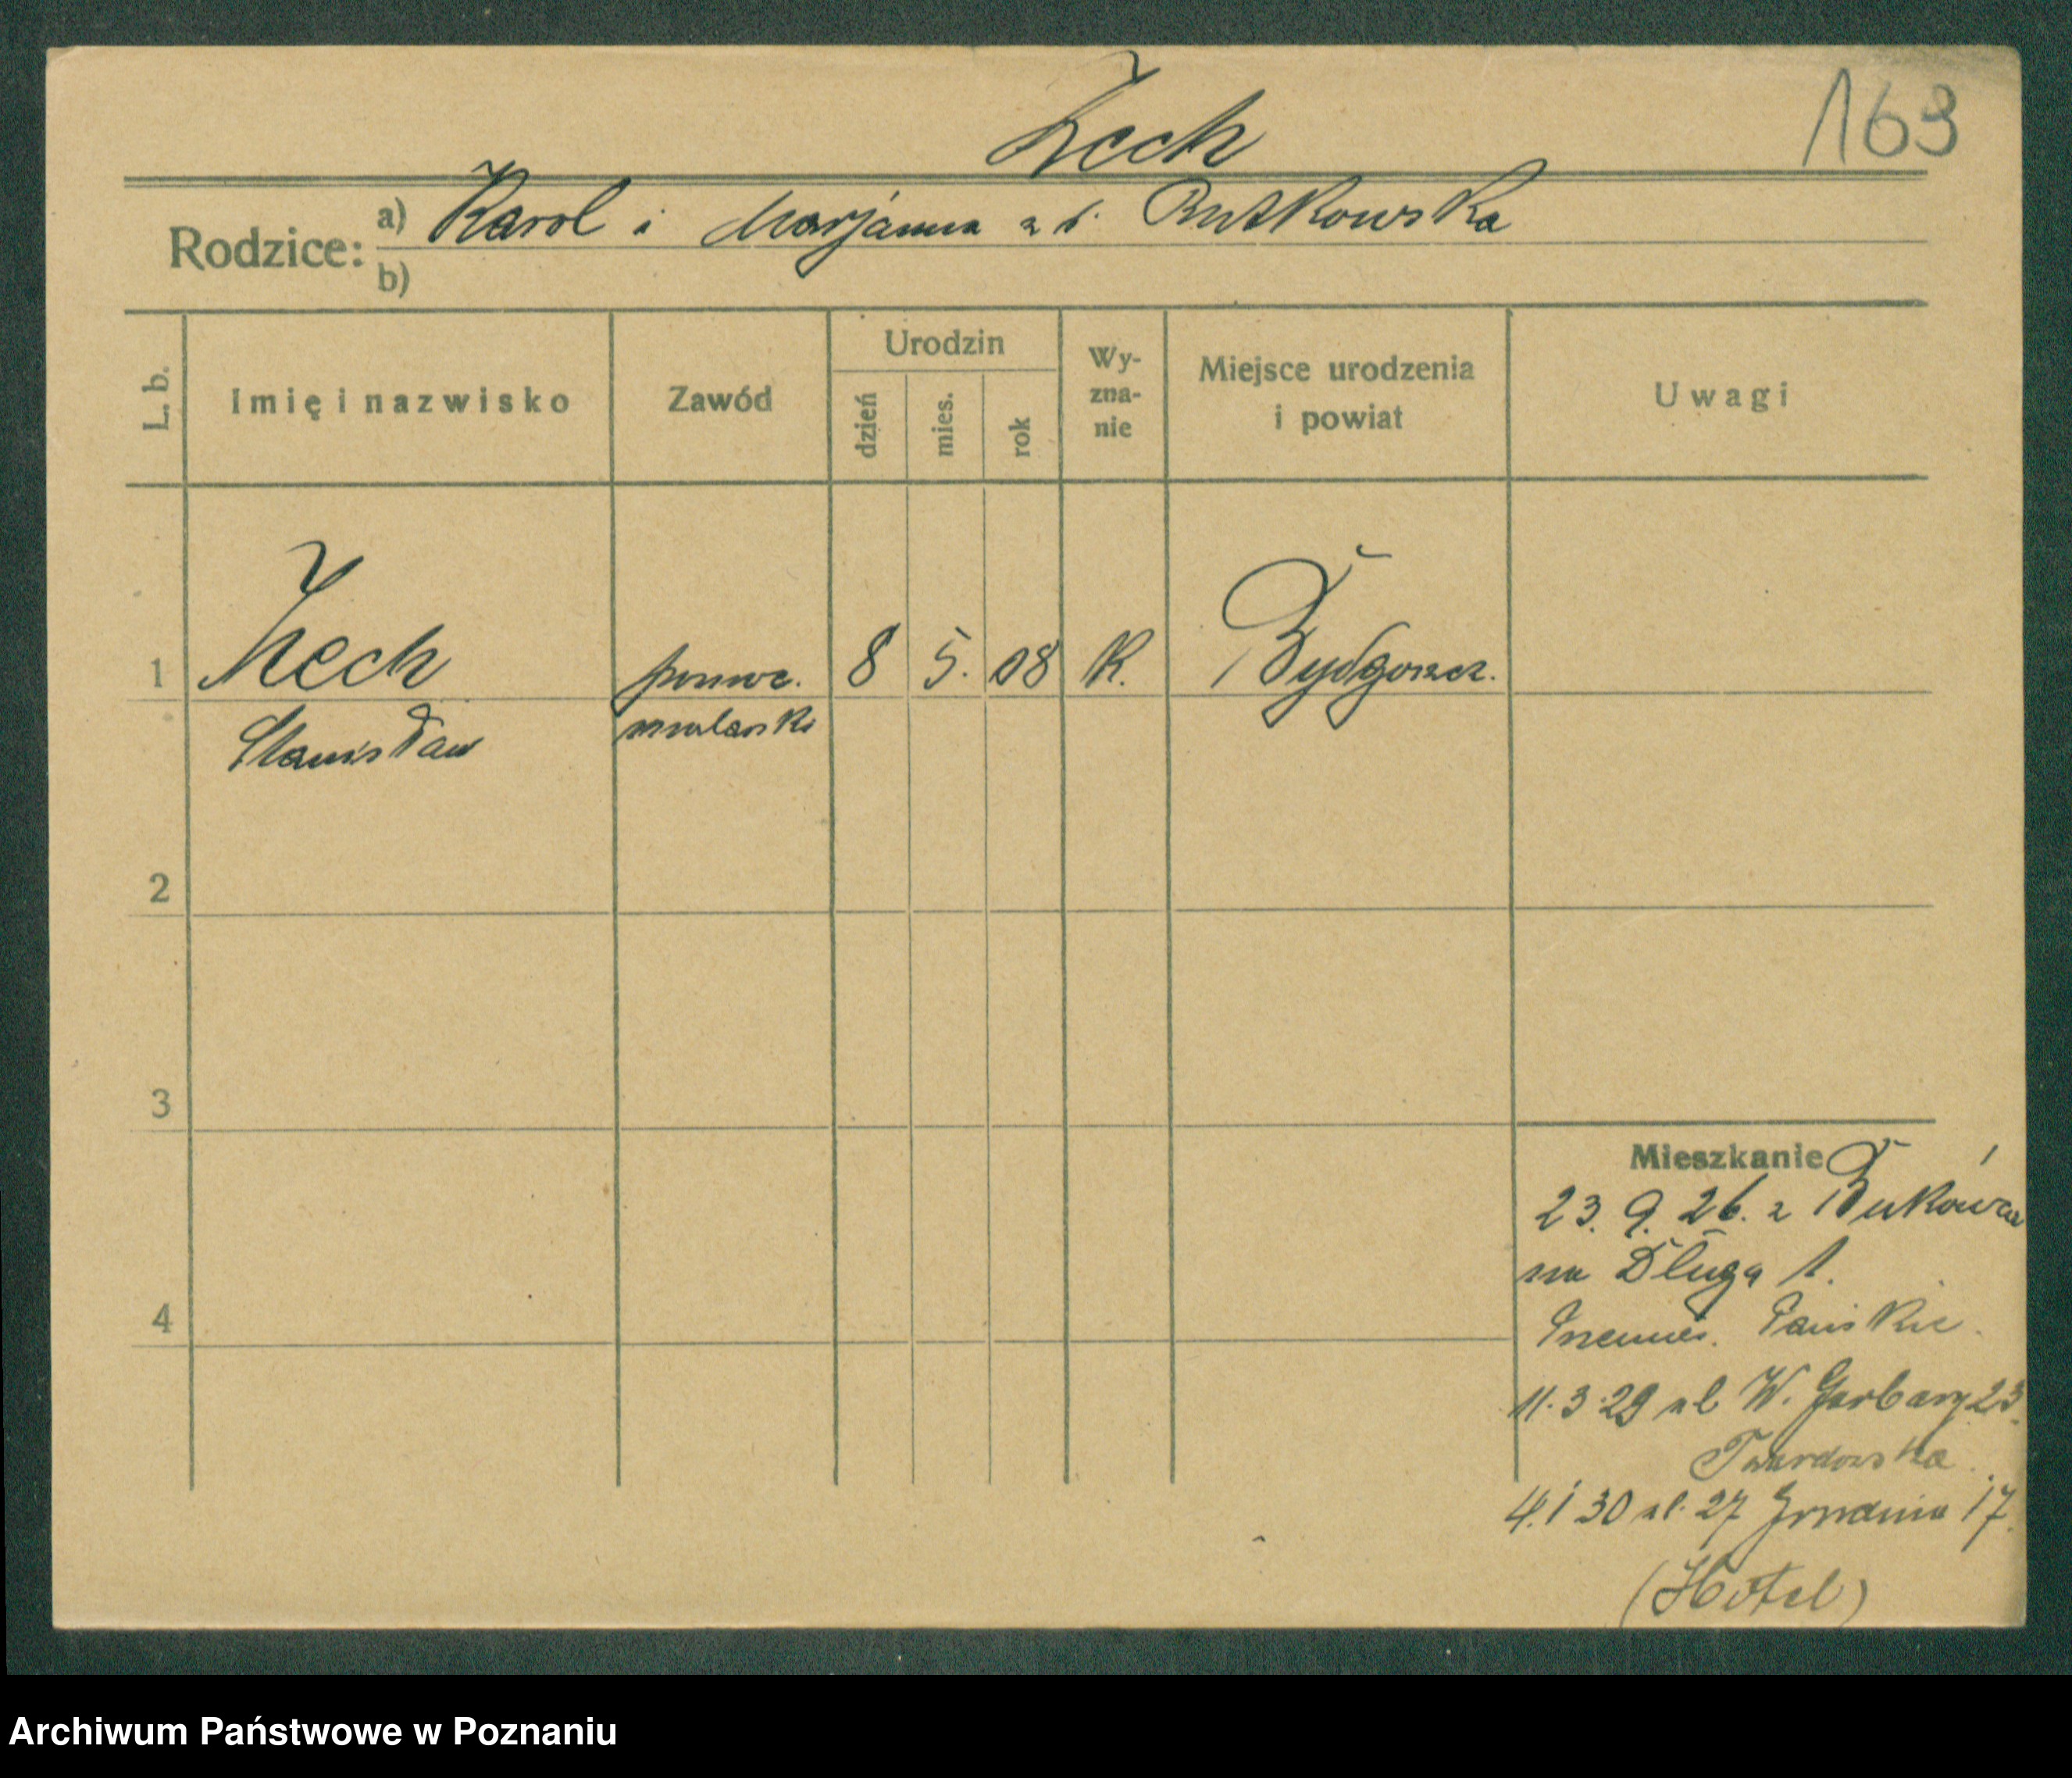 163
Zech
Rodzice: a) Karol i Marjanna z d. Rutkowska
b)
L. b.
Imię i nazwisko
Zawód
Urodzin
dzień
mies.
rok
Wy-
zna-
nie
Miejsce urodzenia
i powiat
Uwagi
1 Zech pomoc. 8 5. 08 K. Bydgoszcz.
Stanisław mularski
2
3
4
Mieszkanie
23. 9. 26. z Bukówca
na Długa 1.
Przemien. Pańskie.
11.3.29 ul W. Garbary 23.
Twardowska
4.1 30 ul. 27 Grudnia 17.
(Hotel)
Archiwum Państwowe w Poznaniu